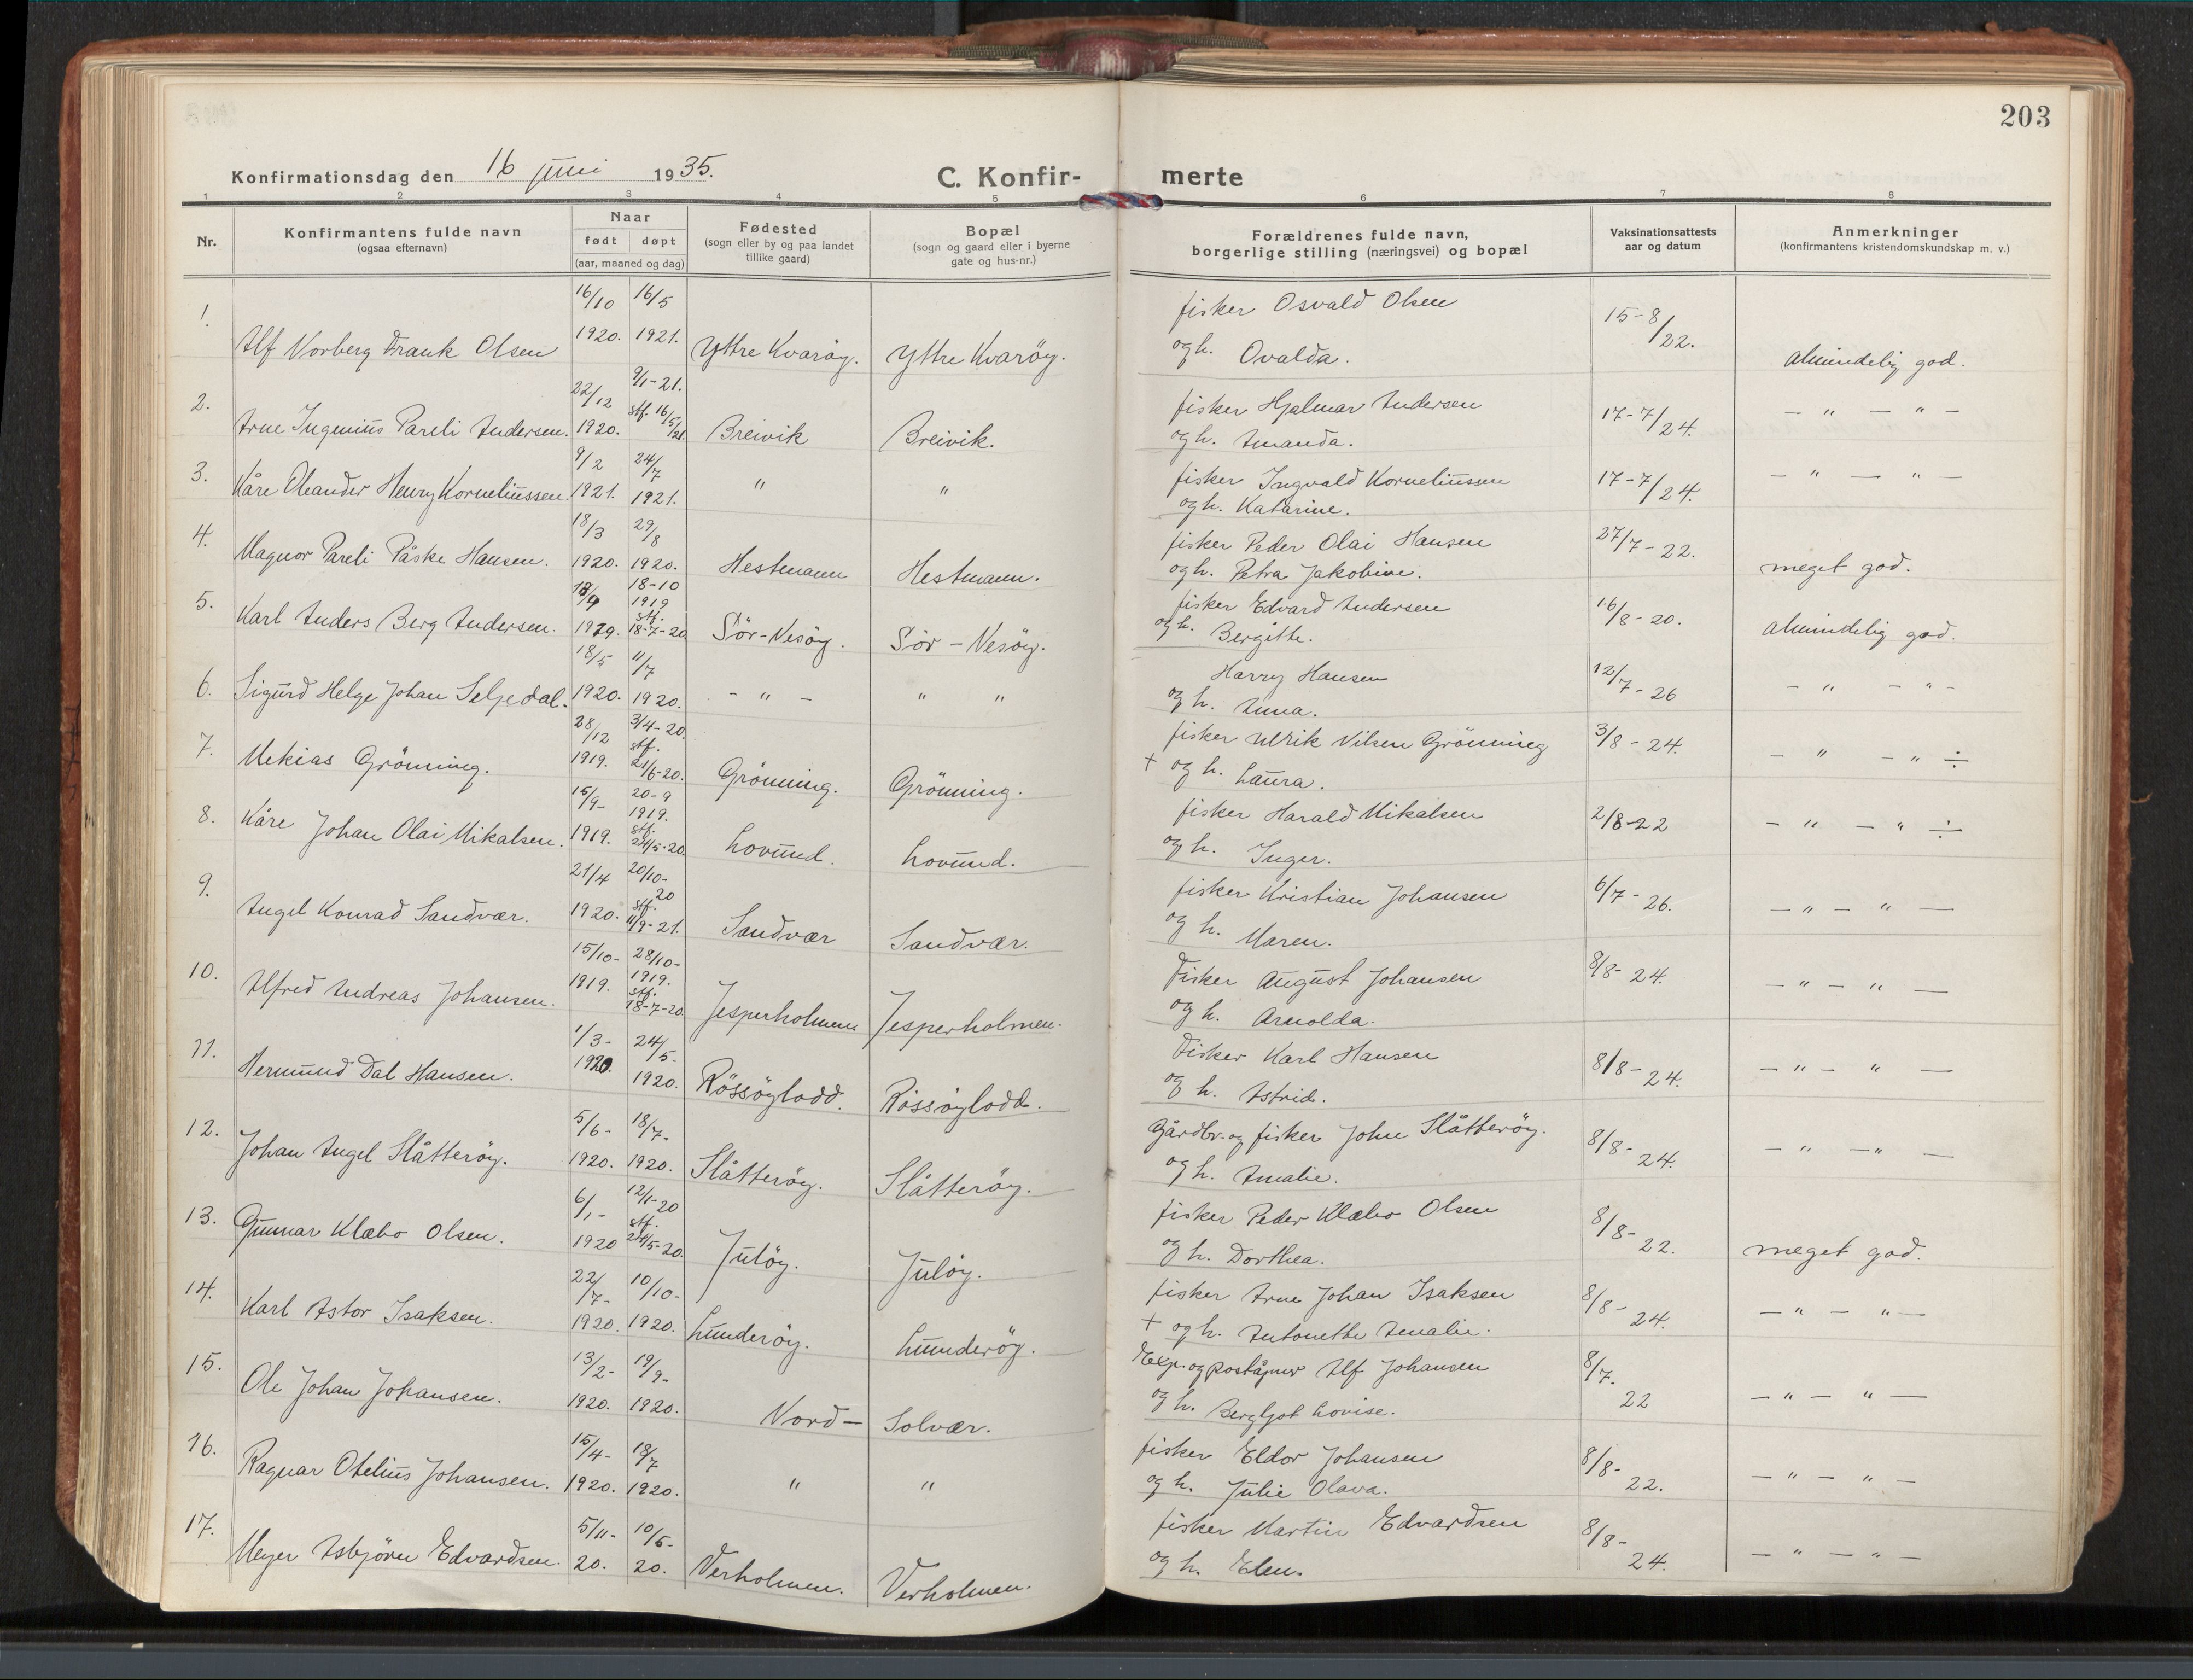 203
Konfirmationsdag den 16 juni 1935.
C. Konfir-
merte
1 2 3 4 5 6 7 8
Nr.
Konfirmantens fulde navn
(ogsaa efternavn)
Naar
født døpt
(aar, maaned og dag)
Fødested
(sogn eller by og paa landet
tillike gaard)
Bopæl
(sogn og gaard eller i byerne
gate og hus-nr.)
Forældrenes fulde navn,
borgerlige stilling (næringsvei) og bopæl
Vaksinationsattests
aar og datum
Anmerkninger
(konfirmantens kristendomskundskap m. v.)
1. 16/10 16/5 fisker Osvald Olsen 15-8/22.
Alf Norberg Frank Olsen 1920. 1921. Yttre Kvaröy. Yttre Kvaröy. og h. Ovalda. almindelig god.
2. 22/12 9/1-21. fisker Hjalmar Andersen 17-7/24. — " — " —
Arne Ingmius Pareli Andersen. 1920. stf. 16/5/21. Breivik Breivik. og h. Amanda.
3. 9/2 24/7 fisker Ingvald Korneliussen 17-7/24. — " — " —
Kåre Oleander Henry Korneliussen. 1921. 1921. " " og h. Katarine.
4. 18/3 29/8 fisker Peder Olai Hansen 27/7-22.
Magnor Pareli Påske Hansen. 1920. 1920. Hestmann Hestmann. og h. Petra Jakobine. meget god.
5. 18/9 18-10 1919 fisker Edvard Andersen 16/8-20.
Karl Anders Berg Andersen. 1919. stf. 18-7-20 Sör-Nesöy. Sör-Nesöy. og h. Bergitte. almindelig god.
6. 18/5 11/7 Harry Hansen 12/7-26 — " — " —
Sigurd Helge Johan Seljedal. 1920. 1920. — " — " " og h. Anna.
7. 28/12 3/4-20. fisker Ulrik Nilsen Grönning 3/8-24. — " — " ÷
Mekias Grönning. 1919. stf. 21/6-20. Grönning. Grönning. + og h. Laura.
8. 15/9- 20-9 1919. fisker Harald Mikalsen 2/8-22 — " — " ÷
Kåre Johan Olai Mikalsen. 1919. stf. 24/5-20. Lovund. Lovund. og h. Inger.
9. 21/4 20/10-20 fisker Kristian Johansen 6/7-26. — " — " —
Angel Konrad Sandvær. 1920. stf. 11/9-21. Sandvær Sandvær. og h. Maren.
10. 15/10- 28/10- 1919. Fisker August Johansen 8/8-24. — " — " —
Alfred Andreas Johansen. 1919. stf. 18-7-20. Jesperholmen Jesperholmen. og h. Arnolda.
11. 1/3- 24/5- Fisker Karl Hansen 8/8-24. — " — " —
Hermund Dal Hansen. 1920 1920. Rössöylodd. Rössöylodd. og h. Astrid.
12. 5/6- 18/7- Gårdbr. og fisker John Slåtteröy. 8/8-24. — " — " —
Johan Angel Slåtteröy. 1920. 1920. Slåtteröy. Slåtteröy. og h. Amalie.
13. 6/1- 12/1-20 fisker Peder Klæbo Olsen 8/8-22.
Gunnar Klæbo Olsen. 1920 stf. 24/5-20. Julöy. Julöy. og h. Dorthea. meget god.
14. 22/7- 10/10- fisker Arne Johan Isaksen 8/8-24. — " — " —
Karl Astor Isaksen. 1920. 1920. Lunderöy. Lunderöy. + og h. Antonette Amalie.
15. 13/2- 19/9- Exp. og poståpner Alf Johansen 8/7. 22 — " — " —
Ole Johan Johansen. 1920. 1920. Nord- Solvær. og h. Bergljot Lovise.
16. 15/4- 18/7 fisker Eldor Johansen 8/8-22. — " — " —
Ragnar Otelius Johansen. 1920. 1920. " " og h. Julie Olava.
17. 5/11- 10/5- fisker Martin Edvardsen 8/8-24. — " — " —
Meyer Asbjörn Edvardsen. 20. 20. Verholmen. Verholmen. og h. Elen.